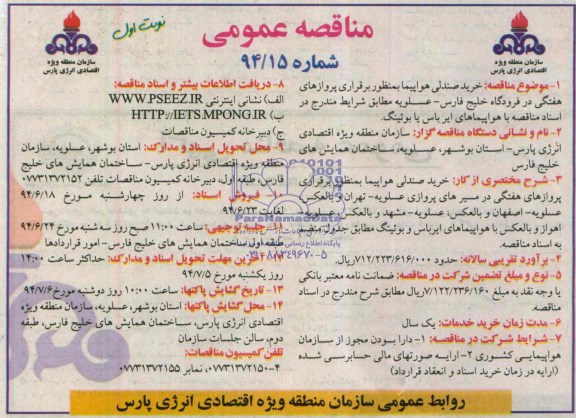 مناقصه عمومی
نوبت اول
شماره ۹۴/۱۵
سازمان منطقه ویژه
اقتصادی انرژی پارس
سازمان منطقه ویژه
اقتصادی انرژی پارس
۱-موضوع مناقصه: خرید صندلی هواپیما بمنظور برقراری پروازهای
هفتگی در فرودگاه خلیج فارس- عسلویه مطابق شرایط مندرج در
اسناد مناقصه با هواپیماهای ایر باس یا بوئینگ.
۲- نام و نشانی دستگاه مناقصه گزار: سازمان منطقه ویژه اقتصادی
انرژی پارس- استان بوشهر، عسلویه، ساختمان همایش های
خلیج فارس
۳- شرح مختصری از کار: خرید صندلی هواپیما بمنظور برقراری
پروازهای هفتگی در مسیر های پروازی عسلویه- تهران و بالعکس
عسلویه- اصفهان و بالعکس، عسلویه- مشهد و بالعکس
اهواز و بالعکس با هواپیماهای ایرباس و بوئینگ مطابق جدول منضم
به اسناد مناقصه.
۴- برآورد تقریبی سالانه: حدود ۷۱۲/۲۲۳/۶۱۶/۰۰۰ ریال.
۵- نوع و مبلغ تضمین شرکت در مناقصه: ضمانت نامه معتبر بانکی
یا وجه نقد به مبلغ ۷/۱۲۲/۲۳۶/۱۶۰ ریال مطابق شرح مندرج در اسناد
مناقصه
۶- مدت زمان خرید خدمات: یک سال
۷- شرایط شرکت در مناقصه: ۱- دارا بودن مجوز از سازمان
هواپیمایی کشوری ۲- ارایه صورتهای مالی حسابرسی شده
(ارایه در زمان خرید اسناد و انعقاد قرارداد)
۸- دریافت اطلاعات بیشتر و اسناد مناقصه:
الف) نشانی اینترنتی WWW.PSEEZ.IR
ب) HTTP://IETS.MPONG.IR
ج) دبیرخانه کمیسیون مناقصات
۹- محل تحویل اسناد و مدارک: استان بوشهر، عسلویه، سازمان
منطقه ویژه اقتصادی انرژی پارس- ساختمان همایش های خلیج
فارس، طبقه اول، دبیرخانه کمیسیون مناقصات تلفن ۰۷۷۳۱۳۷۲۱۵۲
۱۰- فروش اسناد: از روز چهارشنبه مورخ ۹۴/۶/۱۸
لغایت ۹۴/۶/۲۳
۱۱- جلسه توجیهی: ساعت ۱۱:۰۰ صبح روز سه شنبه مورخ ۹۴/۶/۲۴
طبقه اول ساختمان همایش های خلیج فارس- امور قراردادها
مهلت تحویل اسناد و مدارک: حداکثر ساعت ۱۴:۰۰
روز یکشنبه مورخ ۹۴/۷/۵
۱۳- تاریخ گشایش پاکتها: ساعت ۱۰:۰۰ روز دوشنبه مورخ ۹۴/۷/۶
۱۴- محل گشایش پاکتها: استان بوشهر، عسلویه، سازمان منطقه ویژه
اقتصادی انرژی پارس، ساختمان همایش های خلیج فارس، طبقه
دوم، سالن جلسات سازمان
تلفن کمیسیون مناقصات:
۰۷۷۳۱۳۷۲۱۵۰-۴، نمابر ۰۷۷۳۱۳۷۲۱۵۵
ParsNamadData
پایگاه اطلاع رسانی
۰۲۱-۸۸۳۴۹۶۷۰-۵
روابط عمومی سازمان منطقه ویژه اقتصادی انرژی پارس